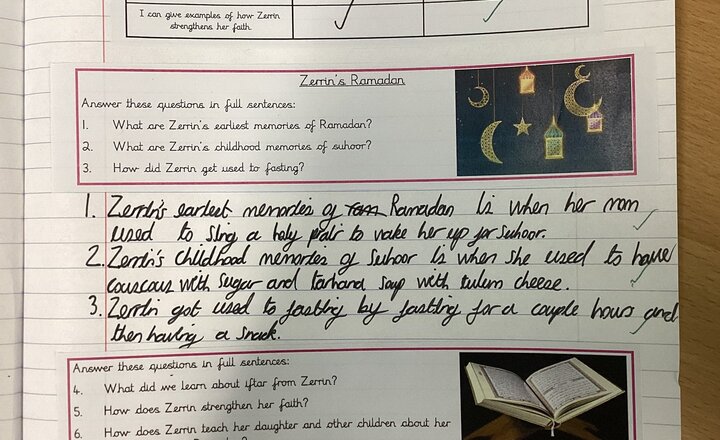 I can give examples of how Zerrin
strengthens her faith.
Zerrin's Ramadan
Answer these questions in full sentences:
1. What are Zerrin's earliest memories of Ramadan?
2. What are Zerrin's childhood memories of suhoor?
3. How did Zerrin get used to fasting?
1. Zerrin's earliest memories of Ramadan is when her mom
used to sing a holy to wake her up for suhoor.
2. Zerrin's childhood memories of suhoor is when she used to have
couscous with sugar and tarhana soup with tulum cheese.
3. Zerrin got used to fasting by fasting for a couple hours and
then having a snack.
Answer these questions in full sentences:
4. What did we learn about iftar from Zerrin?
5. How does Zerrin strengthen her faith?
6. How does Zerrin teach her daughter and other children about her